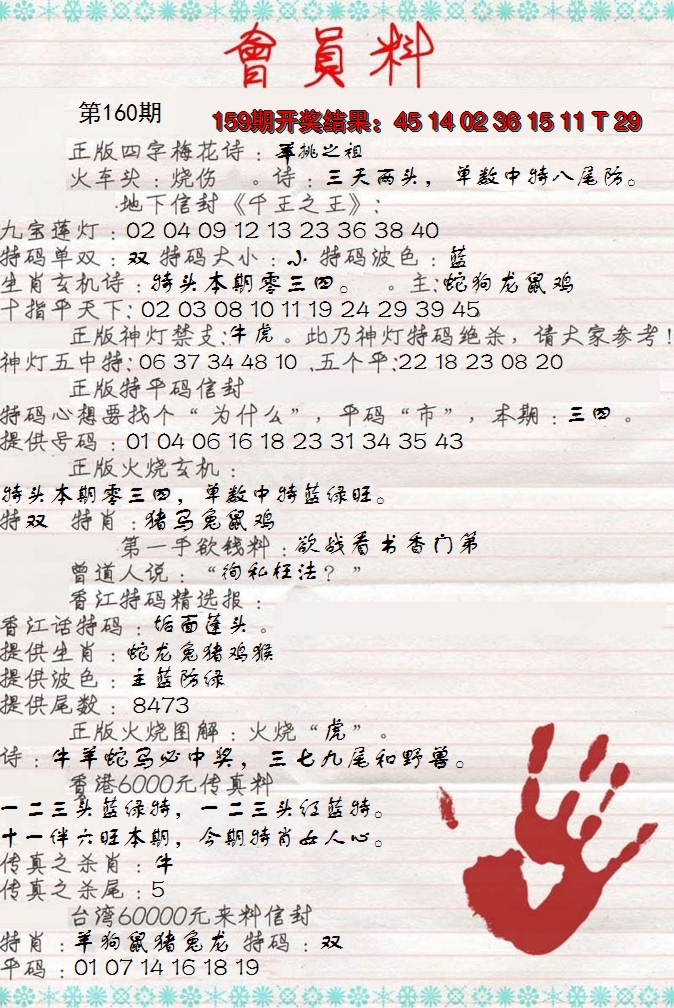 會員料
第160期
159期开奖结果：45 14 02 36 15 11 T 29
正版四字梅花诗：羊挑之祖
火车头：烧伤 。诗：三天两头，单数中特八尾防。
地下信封《千王之王》：
九宝莲灯：02 04 09 12 13 23 36 38 40
特码单双：双 特码大小：小 特码波色：蓝
生肖玄机诗：特头本期零三四。 。主：蛇狗龙鼠鸡
十指平天下：02 03 08 10 11 19 24 29 39 45
正版神灯禁支：牛虎。此乃神灯特码绝杀，请大家参考！
神灯五中特：06 37 34 48 10 、五个平：22 18 23 08 20
正版特平码信封
特码心想要找个“为什么”，平码“市”，本期：三四。
提供号码：01 04 06 16 18 23 31 34 35 43
正版火烧玄机：
特头本期零三四，单数中特蓝绿旺。
特双 特肖：猪马兔鼠鸡
第一手欲钱料：欲战看书香门第
曾道人说：“徇私枉法？”
香江特码精选报：
香江话特码：垢面蓬头。
提供生肖：蛇龙兔猪鸡猴
提供波色：主蓝防绿
提供尾数：8473
正版火烧图解：火烧“虎”。
诗：牛羊蛇马必中奖，三七九尾和野兽。
香港6000元传真料
一二三头蓝绿特，一二三头红蓝特。
十一伴六旺本期，今期特肖女人心。
传真之杀肖：牛
传真之杀尾：5
台湾60000元来料信封
特肖：羊狗鼠猪兔龙 特码：双
平码：01 07 14 16 18 19